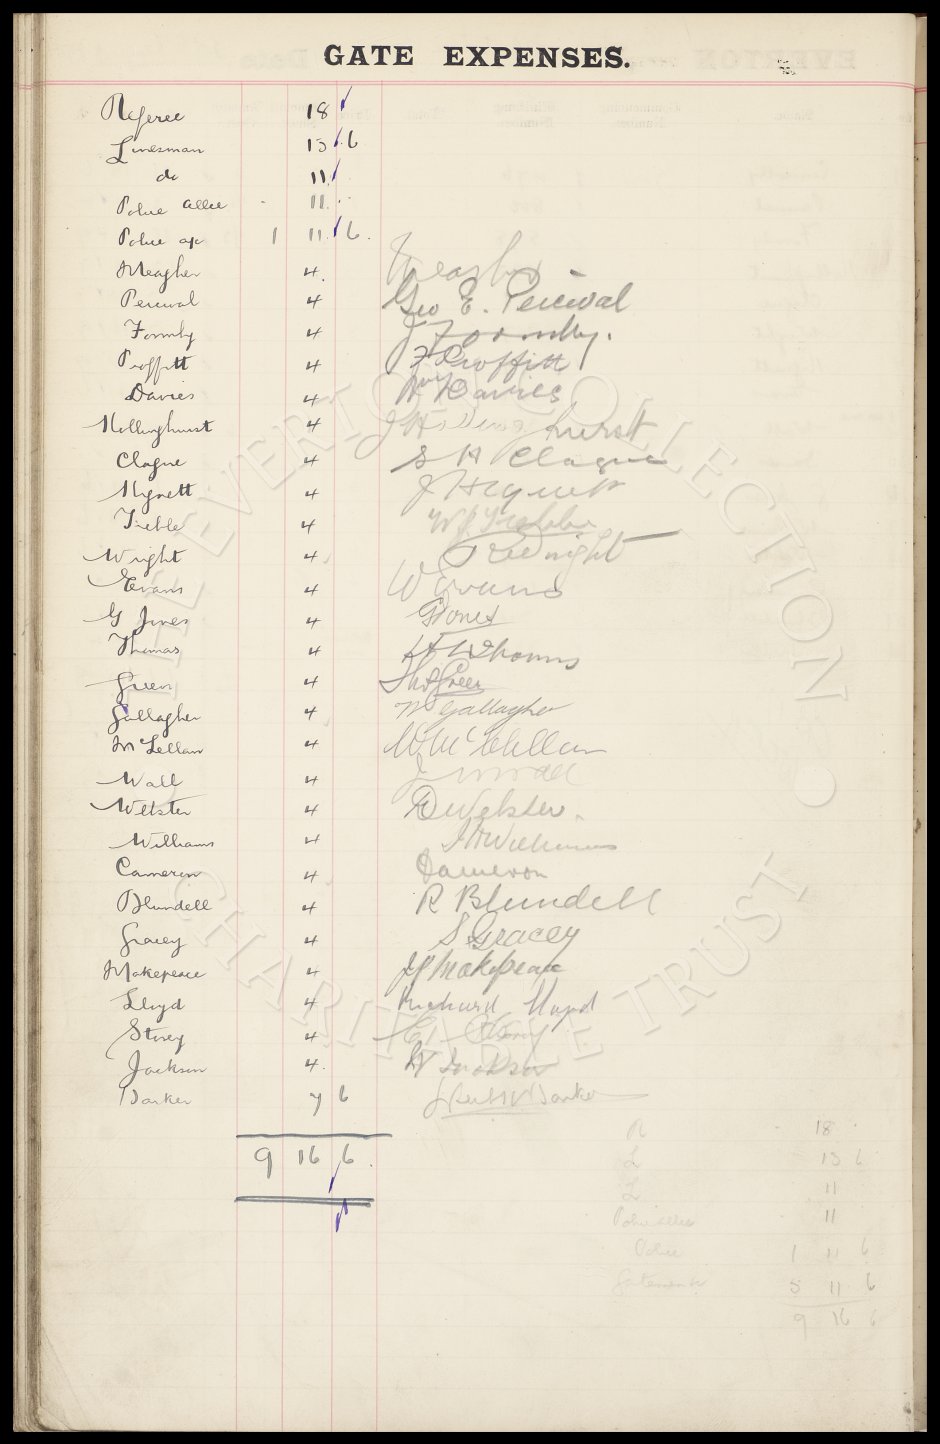 GATE EXPENSES.
Referee 18
Linesman 13 6
do 11
Police allce 11
Police ap 1 11 6
Meagher 4 Meagher
Percival 4 Geo E. Percival
Formby 4 J Formby.
Proffitt 4 F Proffitt
Davies 4 Wm Davies
Hollinghurst 4 J Hollinghurst
Clague 4 S H Clague
Hignett 4 J Hignett
Treble 4 W J Treble
Wright 4 Wright
Evans 4 W Evans
G Jones 4 G Jones
Thomas 4 Thomas
Green 4 Thos Green
Gallagher 4 Gallagher
McLellan 4 W McLellan
Wall 4 J Wall
Webster 4 Webster.
Williams 4 Williams
Cameron 4 Cameron
Blundell 4 R Blundell
Gracey 4 S Gracey
Makepeace 4 Makepeace
Lloyd 4 Richard Lloyd
Storey 4 Storey
Jackson 4 Jackson
Barker 7 6 Barker
9 16 6
R 18
L 13 6
L 11
Police allce 11
Police 1 11 6
Gatemen 5 11 6
9 16 6
THE EVERTON COLLECTION CHARITABLE TRUST